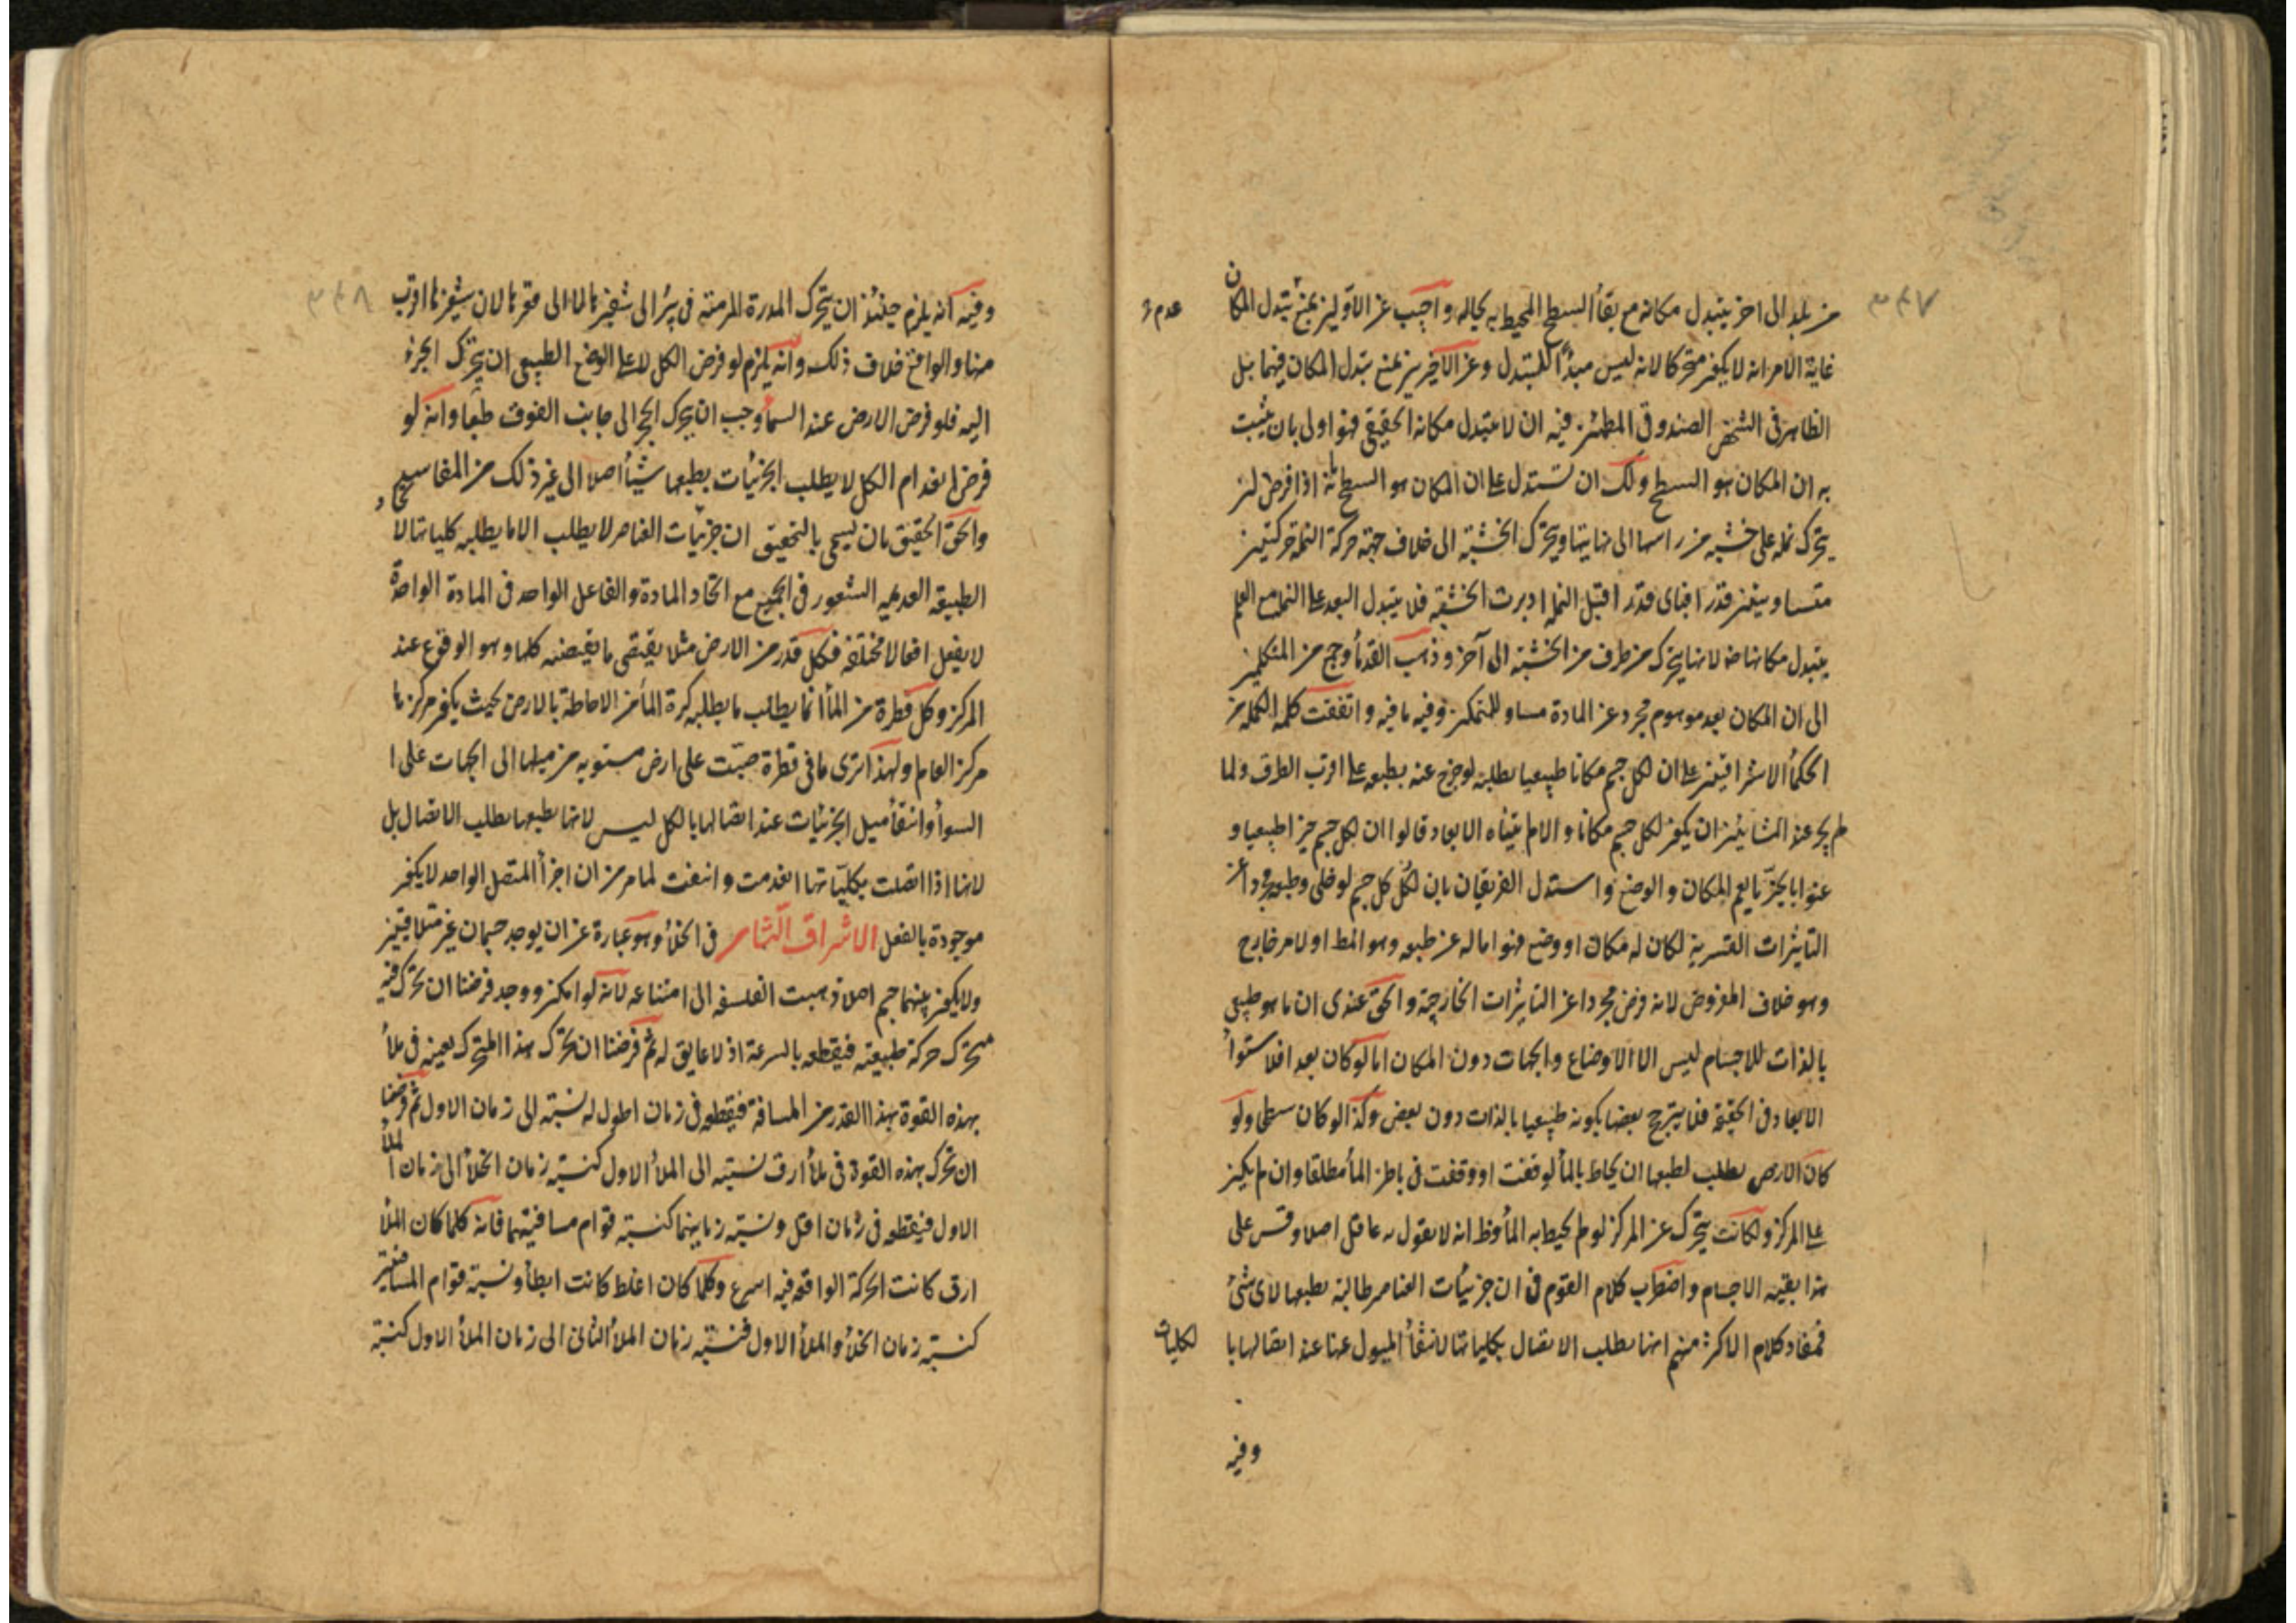 ٣٤٧
من بلد الى اخر يتبدل مكانه مع بقاء السطح المحيط به بحاله واجيب عن الاولين بمنع تبدل المكان
عدم
غاية الامر انه لا يكون متحركا لانه ليس مبدأ للتبدل وعن الاخيرين بمنع تبدل المكان فيهما بل
الظاهر فى الشخص الصندوقى المطمئن فيه ان لا يتبدل مكانه الحقيقى فهو اولى بان يثبت
به ان المكان هو السطح ولك ان تستدل على ان المكان هو السطح بانه اذا فرض ان
يتحرك نملة على خشبه من راسها الى نهايتها ويتحرك الخشبة الى خلاف جهة حركة النملة حركتين
متساويتين فقدر اقبال النملة ادبرت الخشبة فلا يتبدل البعد على النملة مع العلم
يتبدل مكانها لانها يتحرك من طرف من الخشبة الى آخر وذهب القدماء وجمع من المتكلمين
الى ان المكان بعد موهوم مجرد عن المادة مساو للمتمكن وفيه ما فيه واتفقت كلمة الكملة من
الحكماء الاشراقيين على ان لكل جسم مكانا طبيعيا يطلبه لو خرج عنه بطبعه على اقرب الطرق ولما
لم يجز عند المشائين ان يكون لكل جسم مكانا والا لم يتناه الابعاد قالوا ان لكل جسم حيزا طبيعيا و
عنوا بالحيز ما يعم المكان والوضع واستدل الفريقان بان لكل جسم لو خلى وطبعه مجردا عن
التاثيرات القسرية لكان له مكان او وضع فهو اما له عن طبعه وهو المط او لامر خارج
وهو خلاف المفروض لانه فرض مجردا عن التاثيرات الخارجة والحق عندى ان ما هو طبيعى
بالذات للاجسام ليس الا الاوضاع والجهات دون المكان اما لو كان بعدا فلاستواء
الابعاد فى الحقيقة فلا يترجح بعضها بكونه طبيعيا بالذات دون بعض وكذا لو كان سطحا ولو
كان الارض يطلب لطبعها ان يحاط بالماء لوقفت فى باطن الماء مطلقا وان لم يكن
على المركز ولكانت يتحرك عن المركز لو لم يحيط به الماء وظ انه لا يقول به عاقل اصلا وقس على
هذا بقية الاجسام واضطرب كلام القوم فى ان جزئيات العناصر طالبة بطبعها لاى شئ
فمفاد كلام الاكثر منهم انها يطلب الاتصال بكلياتها لانتفاء الميول عنها عند اتصالها با
لكليات
وفيه
٣٤٨
وفيه انه يلزم حينئذ ان يتحرك المدرة المرمية فى بئر الى شفيرها لا الى قعرها لان شفيرها اقرب
منها والواقع خلاف ذلك وانه يلزم لو فرض الكل لا على الوضع الطبيعى ان يتحرك الجزء
اليه فلو فرض الارض عند السماء وجب ان يتحرك الحجر الى جانب الفوق طبعا وانه لو
فرض انعدام الكل لا يطلب الجزئيات بطبعها شيئا اصلا الى غير ذلك من المفاسد
والحق الحقيق بان يسمى بالتحقيق ان جزئيات العناصر لا يطلب الا ما يطلبه كلياتها لان
الطبيعة العديمة الشعور فى الجميع مع اتحاد المادة والفاعل الواحد فى المادة الواحدة
لا يفعل افعالا مختلفة فكل قدر من الارض مثلا يقتضى ما يقتضيه كلها وهو الوقوع عند
المركز وكل قطرة من الماء انما يطلب ما يطلبه كرة الماء من الاحاطة بالارض بحيث يكون مركزها
مركز العالم ولهذا ترى ما فى قطرة صبت على ارض مستويه من ميلها الى الجهات على ا
السواء وانتفاء ميل الجزئيات عند اتصالها بالكل ليس لانها بطبعها يطلب الاتصال بل
لانها اذا اتصلت بكلياتها انعدمت وانتفت لما مر من ان اجزاء المتصل الواحد لا يكون
موجودة بالفعل الاشراق الثامن فى الخلاء وهو عبارة عن ان يوجد جسمان غير متلاقيين
ولا يكون بينهما جسم اصلا ذهبت الفلسفه الى امتناعه لانه لو امكن ووجد فرضنا ان تحرك فيه
متحرك حركة طبيعية فيقطعه بالسرعة اذ لا عايق له ثم فرضنا ان تحرك هذا المتحرك بعينه فى ملاء
بهذه القوة بهذا القدر من المسافة فيقطعه فى زمان اطول له نسبة الى زمان الاول ثم فرضنا
ان تحرك بهذه القوة فى ملاء ارق نسبته الى الملاء الاول كنسبة زمان الخلاء الى زمان الملاء
الاول فيقطعه فى زمان اقل ونسبة زمانيهما كنسبة قوام مسافتيهما فانه كلما كان الملاء
ارق كانت الحركة الواقعه فيه اسرع وكلما كان اغلظ كانت ابطأ ونسبة قوام المسافتين
كنسبة زمان الخلاء والملاء الاول فنسبة زمان الملاء الثانى الى زمان الملاء الاول كنسبة